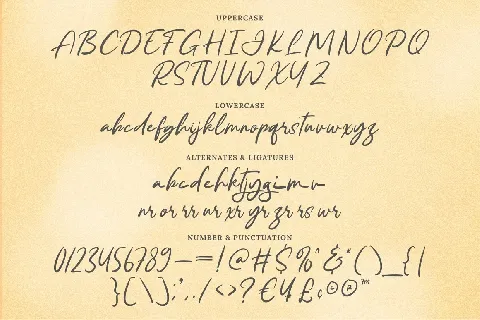 UPPERCASE
ABCDEFGHIJKLMNOPQ
RSTUVWXYZ
LOWERCASE
abcdefghijklmnopqrstuvwxyz
ALTERNATES & LIGATURES
nr or rr ur xr yr zr rs wr
NUMBER & PUNCTUATION
0123456789–=!@#$%^&*()_{|
}[\]:",./<>?€¥£¢©®™